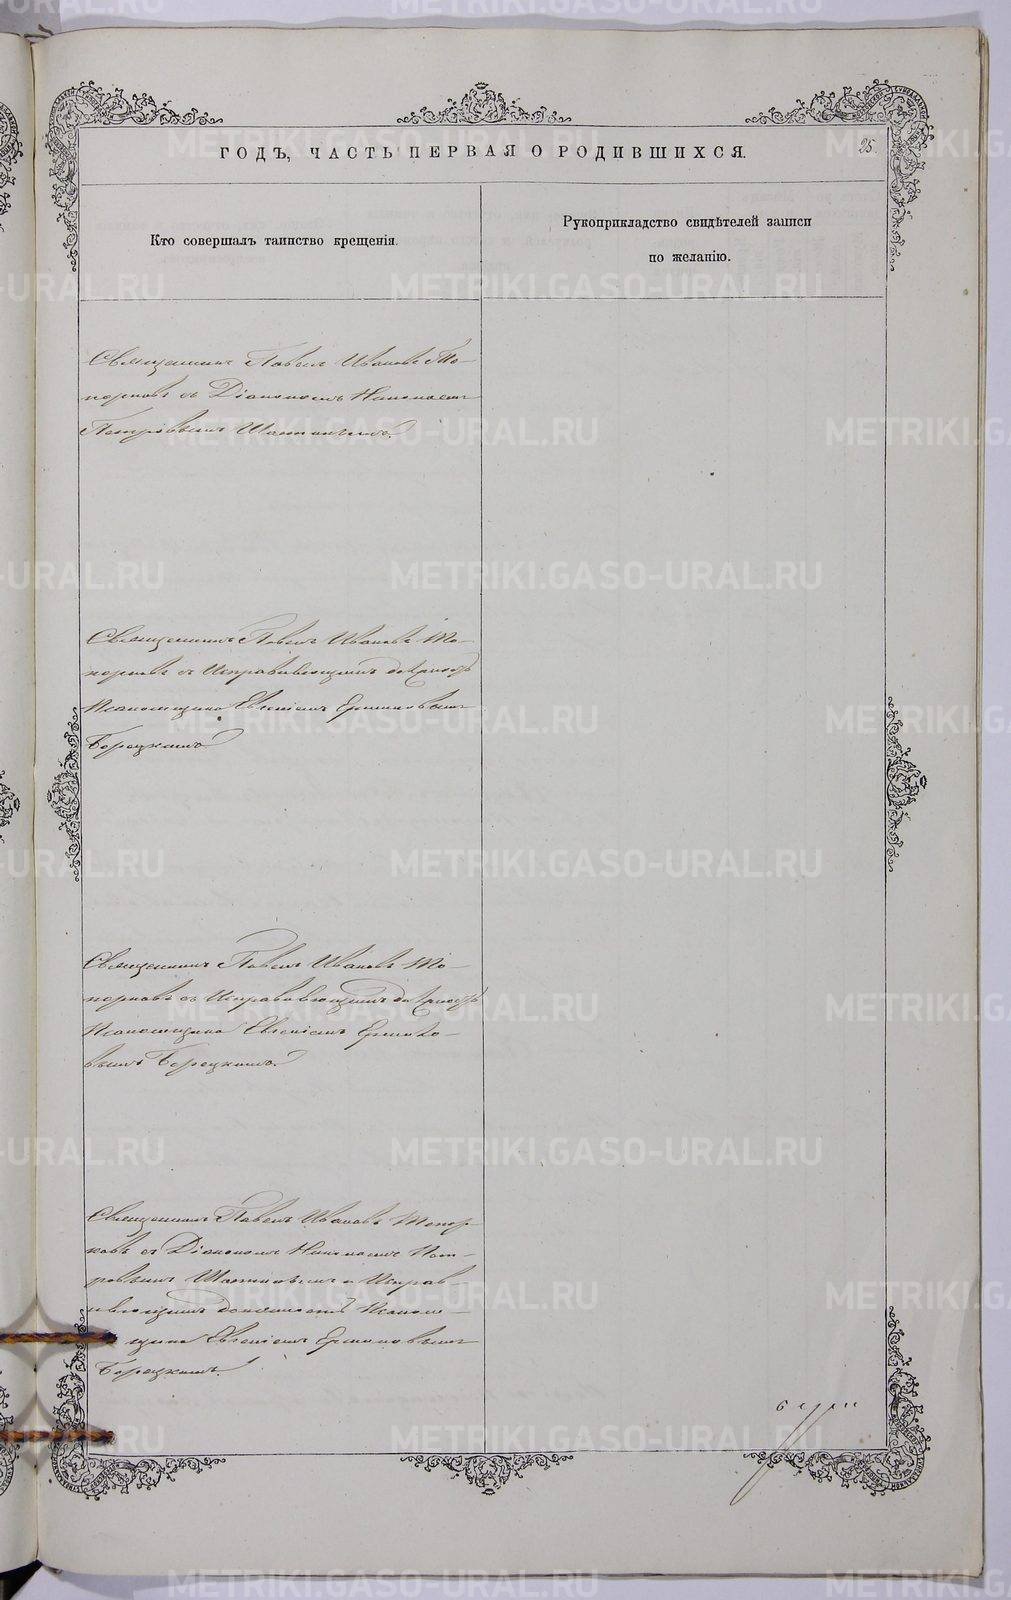 ГОДЪ, ЧАСТЬ ПЕРВАЯ О РОДИВШИХСЯ.
25.
Кто совершалъ таинство крещенія.
Рукоприкладство свидѣтелей записи
по желанію.
Священникъ Павелъ Ивановъ То-
порковъ съ Діакономъ
Петровымъ
Священникъ Павелъ Ивановъ То-
порковъ съ Исправляющимъ должность
Псаломщика Евгеніемъ
Борецкимъ
Священникъ Павелъ Ивановъ То-
порковъ съ Исправляющимъ должность
Псаломщика Евгеніемъ
Борецкимъ.
Священникъ Павелъ Ивановъ Топор-
ковъ съ Діакономъ Пет-
ровымъ и Исправ-
ляющимъ должность Псалом-
щика Евгеніемъ
Борецкимъ.
METRIKI.GASO-URAL.RU